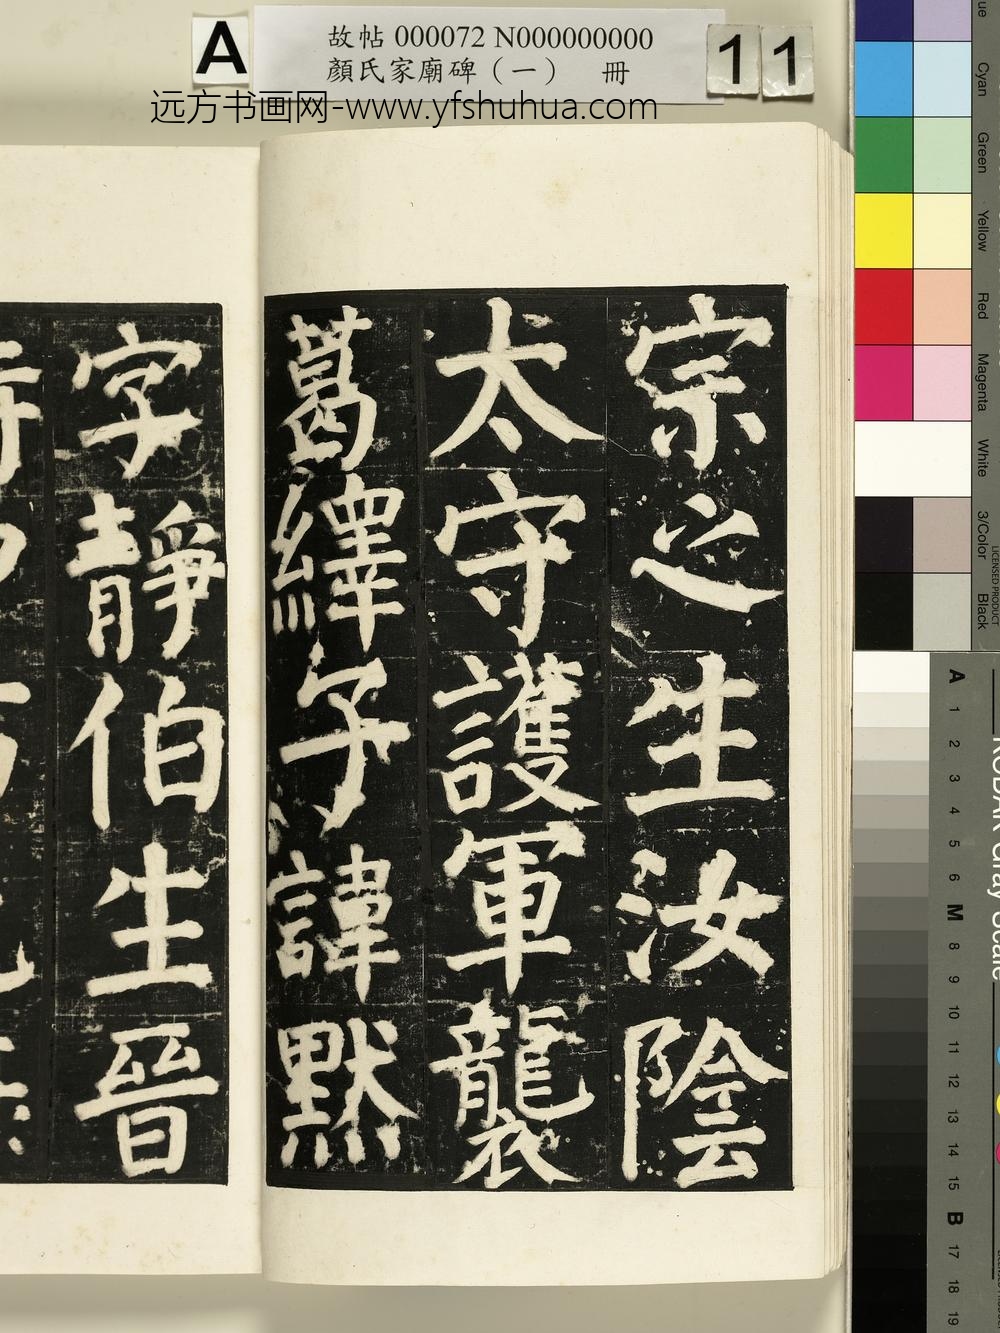 A
故帖 000072 N000000000
顏氏家廟碑（一） 冊
1 1
远方书画网-www.yfshuhua.com
宗之生汝陰
太守護軍襲
葛繹子諱默
字靜伯生晉
Cyan
Green
Yellow
Red
Magenta
White
3/Color
Black
LICENSED PRODUCT
A 1 2 3 4 5 6 M 8 9 10 11 12 13 14 15 B 17 18 19